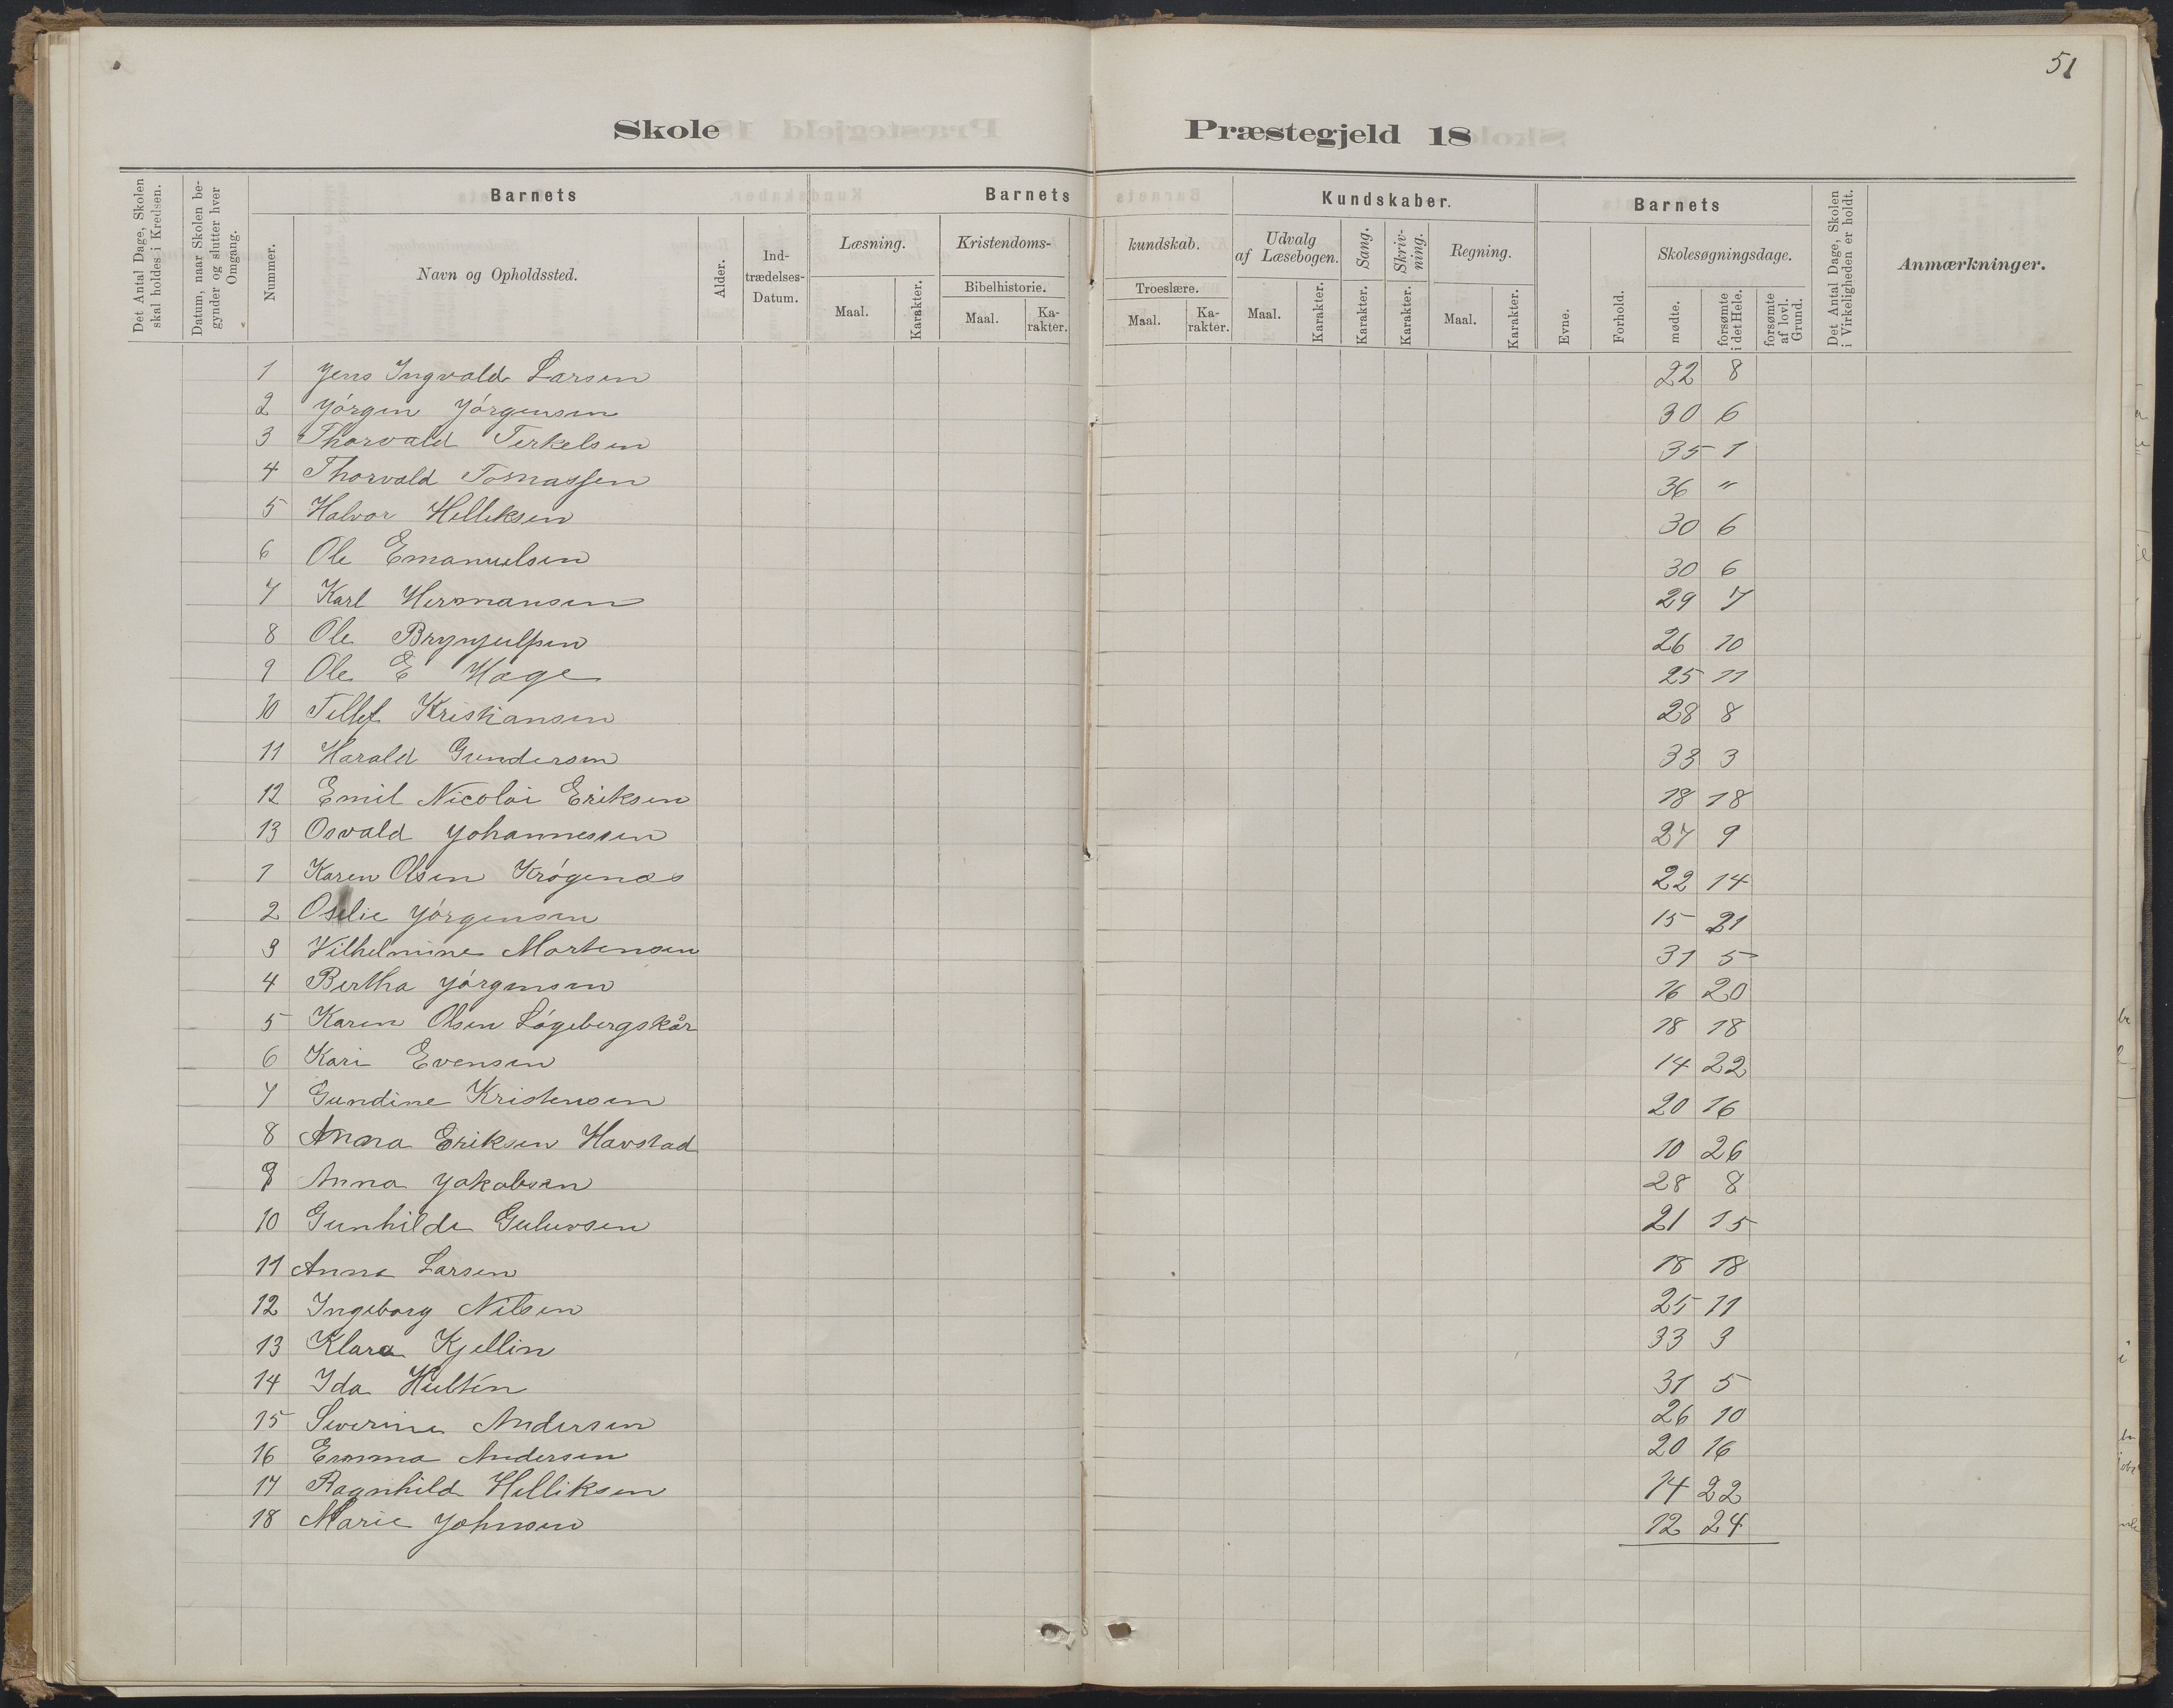 51
Skole Præstegjeld 18
Det Antal Dage, Skolen skal holdes i Kredsen.
Datum, naar Skolen begynder og slutter hver Omgang.
Barnets
Nummer. Navn og Opholdssted. Alder. Indtrædelses-Datum.
Barnets Kundskaber.
Læsning. Maal. Karakter.
Kristendoms-kundskab.
Bibelhistorie. Maal. Karakter.
Troeslære. Maal. Karakter.
Udvalg af Læsebogen. Maal. Karakter.
Sang. Karakter.
Skrivning. Karakter.
Regning. Maal. Karakter.
Barnets
Evne. Forhold.
Skolesøgningsdage.
mødte. forsømte i det Hele. forsømte af lovl. Grund.
Det Antal Dage, Skolen i Virkeligheden er holdt.
Anmærkninger.
1 Jens Ingvald Larsen 22 8
2 Jörgen Jörgensen 30 6
3 Thorvald Terkelsen 35 1
4 Thorvald Tomassen 36 "
5 Halvor Helliksen 30 6
6 Ole Emanuelsen 30 6
7 Karl Hermansen 29 7
8 Ole Brynjulsen 26 10
9 Ole E Hage 25 11
10 Tellef Kristiansen 28 8
11 Harald Gundersen 33 3
12 Emil Nicolai Eriksen 18 18
13 Osvald Johannessen 27 9
1 Karen Olsen Krögenæs 22 14
2 Oselie Jörgensen 15 21
3 Vilhelmine Mortensen 31 5
4 Bertha Jörgensen 16 20
5 Karen Olsen Lögebergskår 18 18
6 Kari Evensen 14 22
7 Gundine Kristensen 20 16
8 Anna Eriksen Havstad 10 26
9 Anna Jakobsen 28 8
10 Gunhilde Guluvsen 21 15
11 Anna Larsen 18 18
12 Ingeborg Nilsen 25 11
13 Klara Kjellin 33 3
14 Ida Hultén 31 5
15 Severine Andersen 26 10
16 Emma Andersen 20 16
17 Ragnhild Helliksen 14 22
18 Marie Johnsen 12 24